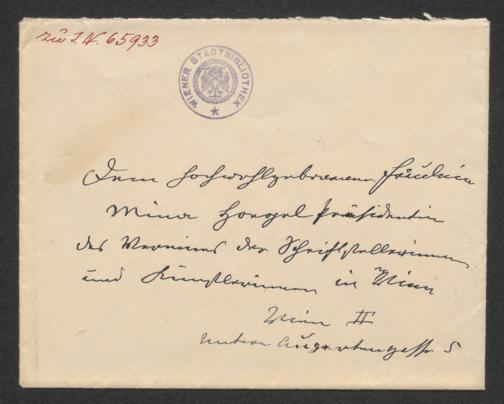 zu I.N. 65933
WIENER STADTBIBLIOTHEK
Dem hochwohlgeborenen Fräulein
Mina Hoegel Präsidentin
des Vereines der Schriftstellerinnen
und Künstlerinnen in Wien
Wien II
Untere Augartenstr. 5